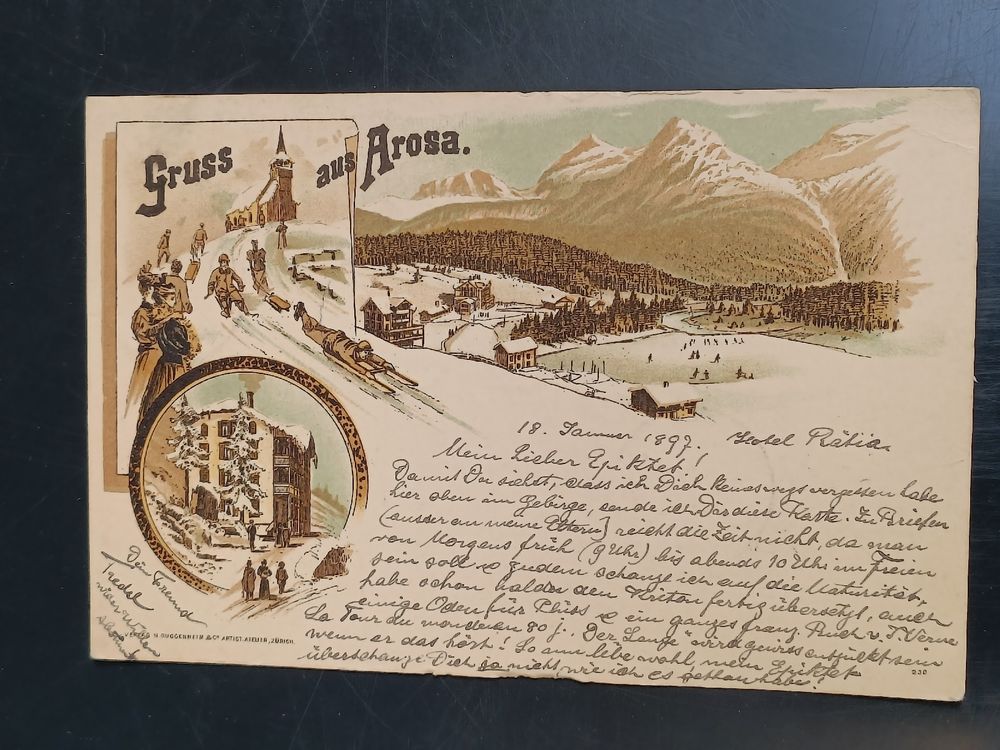 Gruss aus Arosa.
18. Januar 1897. Hotel Rätia
Mein lieber Epiktet!
Damit Du siehst, dass ich Dich keineswegs vergessen habe
hier oben im Gebirge, sende ich Dir diese Karte. Zu Briefen
(ausser an meine Eltern) reicht die Zeit nicht, da man
von Morgens früh (9 Uhr) bis abends 10 Uhr im Freien
sein soll & zudem schanze ich auf die Maturität,
habe schon bald den Kriton fertig übersetzt, auch
einige Oden für Pliss & ein ganzes franz. Buch v. J. Verne
La Tour du monde en 80 j.. "Der Lange" wird gewiss entzückt sein
wenn er das hört! So nun lebe wohl, mein Epiktet
überschanze Dich ja nicht, wie ich es gethan habe!
Dein
VERLAG V. GUGGENHEIM & Co ARTIST. ATELIER, ZÜRICH.
230